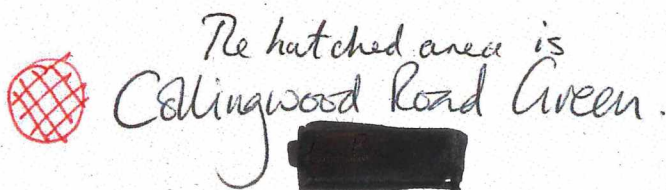 The hatched area is
Collingwood Road Green.